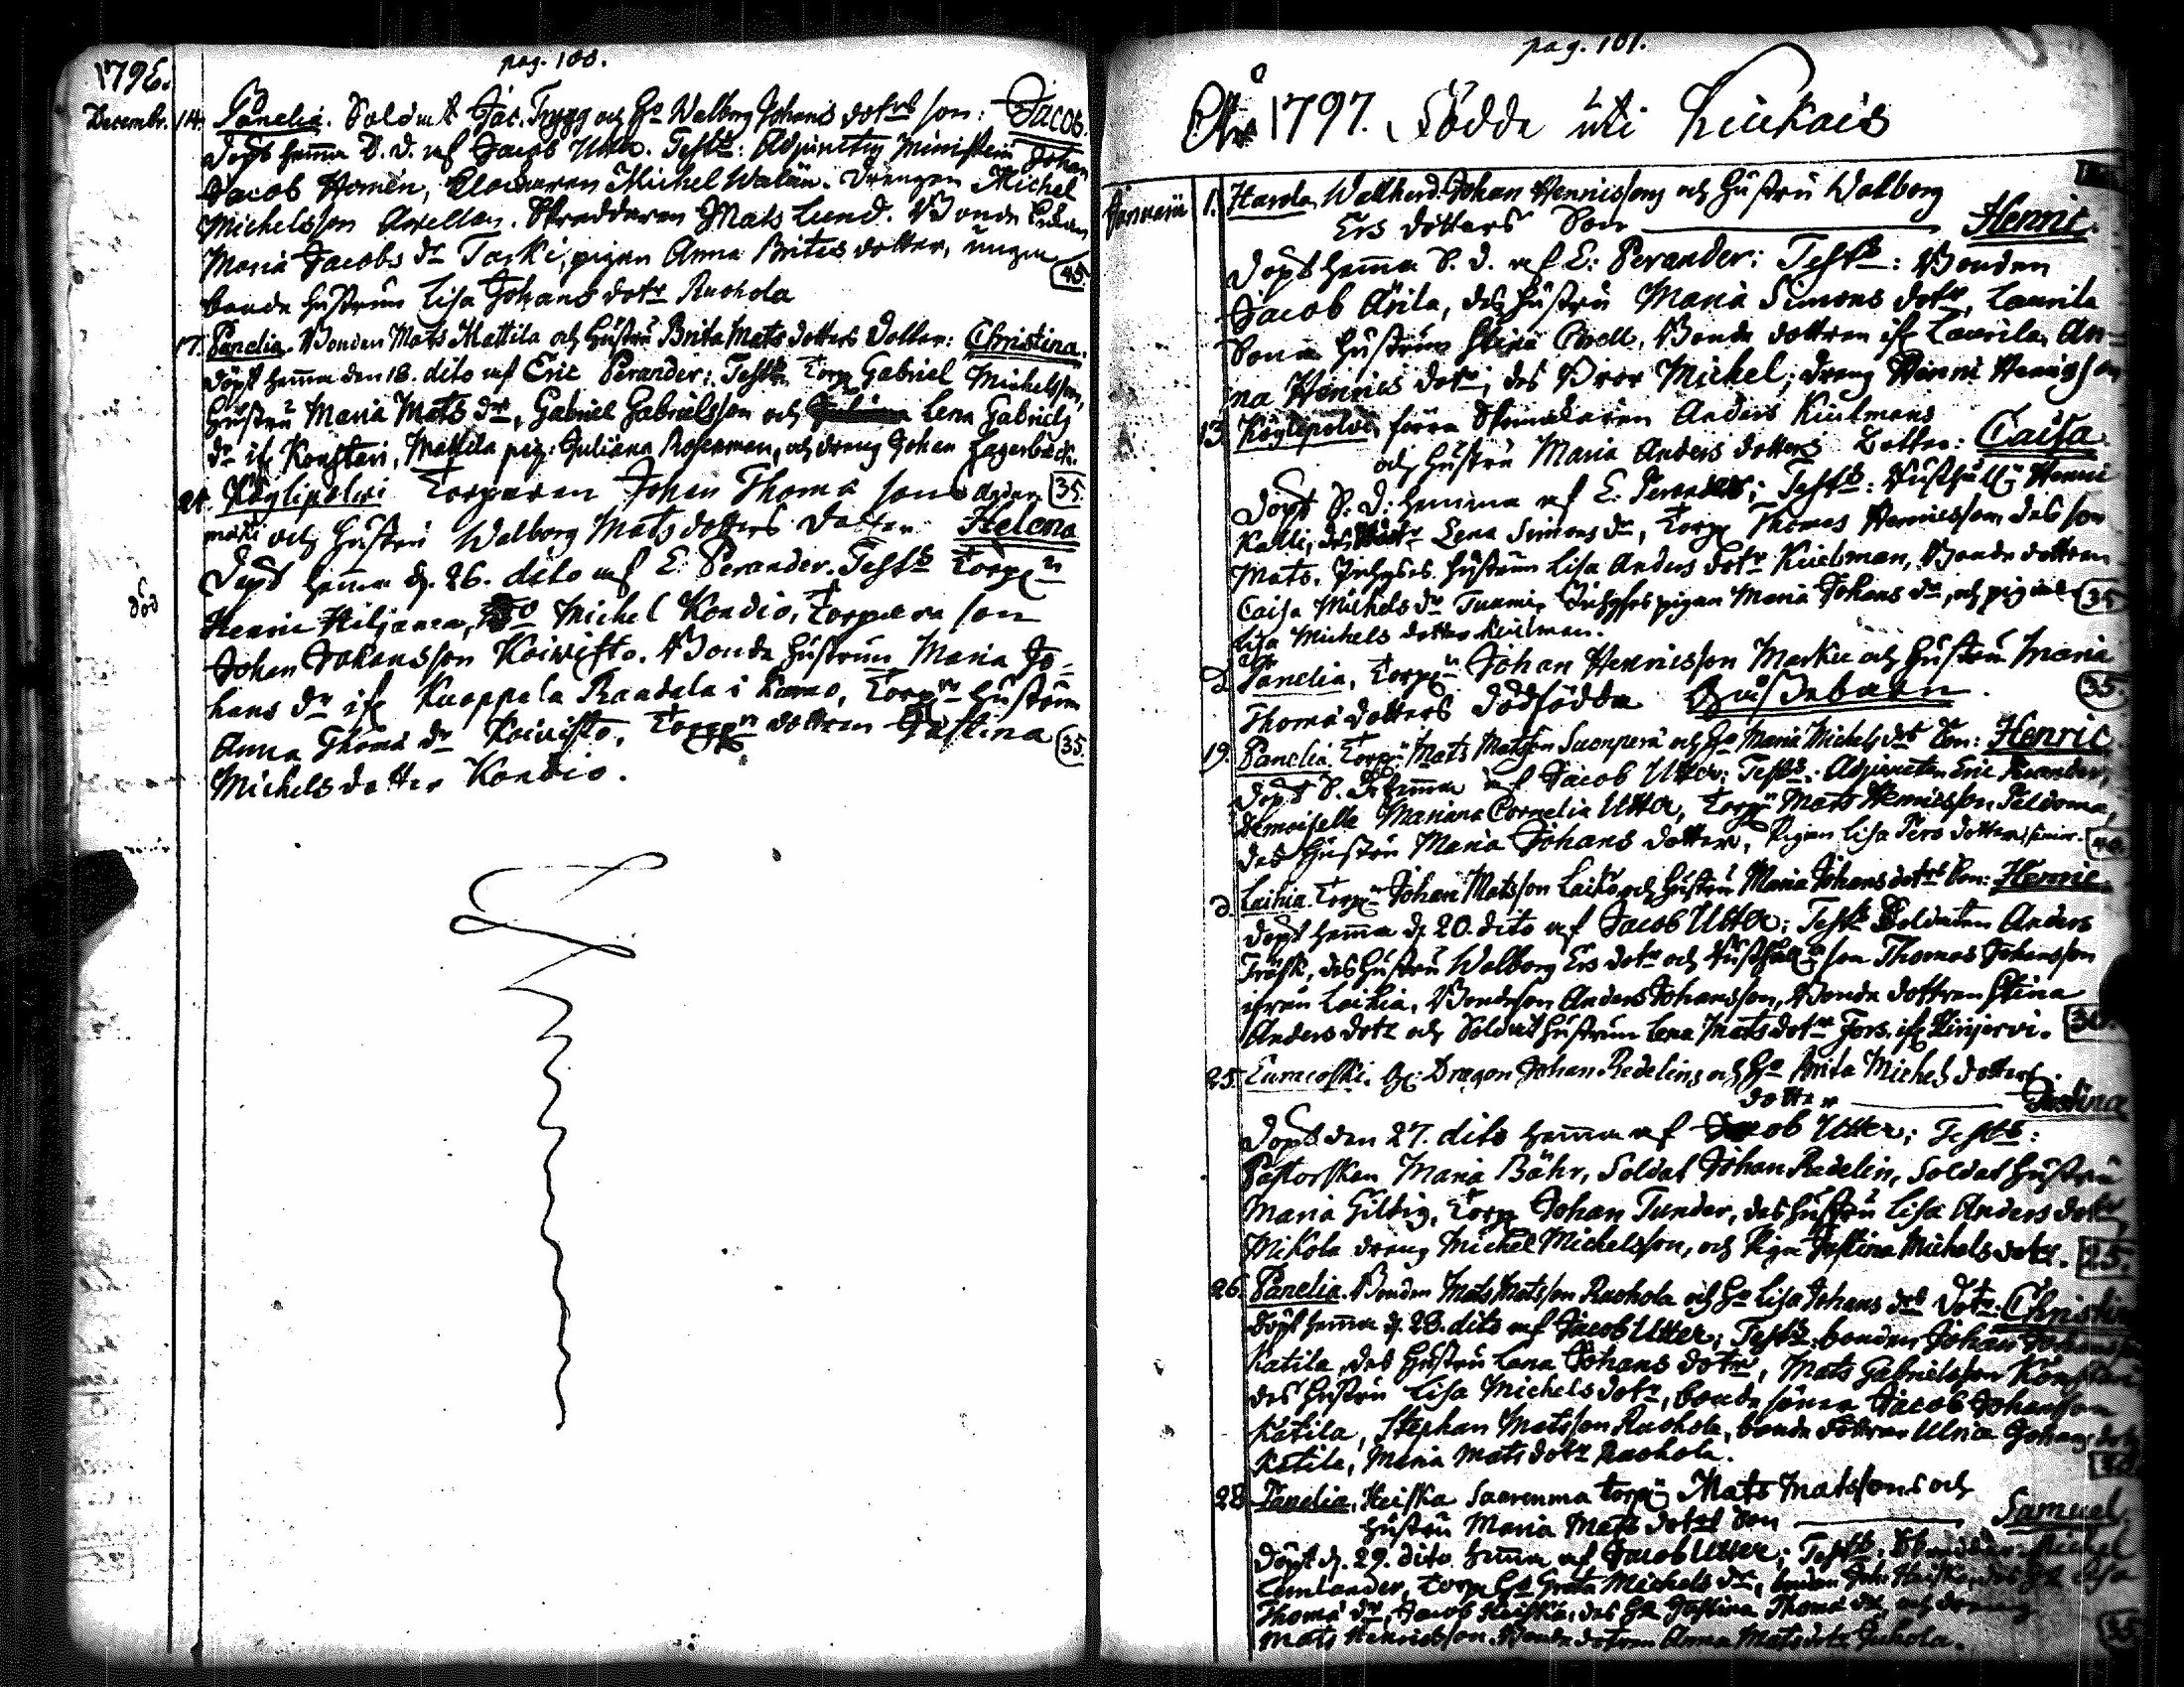 pag. 100.
1796.
Decembr. 14. Panelia. Soldat Jac. Trygg och H:o Walborg Johans dotrs son: Jacob.
döpt hemma D. D. af Jacob Utter. Test: Adjuncten Johan
Jacob Homén, Michel Walin. Drengen Michel
Michelsson Axellan. Skreddaren Mats Lund. Bonde
Maria Jacobs dr Taski, pigan Anna Brites dotter, unga
bonde hustrun Lisa Johans dotr Ruohola 45.
17. Panelia. Bonden Mats Mattila och hustru Brita Mats dotters dotter: Christina.
döpt hemma den 18. dito af Eric Perander: Test: Torp Gabriel Michelsson,
hustru Maria Mats dr, Gabriel Gabrielsson och Lena Gabriels
dr if Konstari, Mattila pig: Juliana Roserman, och dreng Johan Fagerbäck. 35.
24. Köglipolvi Torparen Johan Thomæ sons
mäki och hustru Walborg Mats dotters dotter Helena
döpt hemma d. 26. dito af E. Perander. Test: Torp
död
Henric Hiljanen, Michel Kondio, Torpare son
Johan Johansson Koivisto. Bonde hustrun Maria Jo=
hans dr if Kuoppala Randala i Kumo, Torp hustrun
Anna Thomæ dr Koivisto, Torp dottren Justina 35.
Michels dotter Kondio.
pag. 101.
Åhr 1797. Födde uti Kiukais
Januarii 1. Harola Wallherd. Johan Hennissons och hustru Walborg
Ers dotters Son Henric.
döpt hemma S. D. af E: Perander: Test: Bonden
Jacob Arila, des hustru Maria Simons dotr, Laurila
Sone hustrun Stina Borell, Bonde dottren if Laurila An=
na Henrics dotr, des Bror Michel, dreng Henric Henrigsson
13. Köglipolvi, förra Skomakaren Anders Kiulmans
och hustru Maria Anders dotters dotter: Caisa
döpt S. D: hemma af E. Perander: Test: Rusthåll: Henric
Kalli, des dotr Lena Simons dr, Torp Thomas Henricsson des son
Mats. Inhyses hustrun Lisa Anders dotr Kiulman, Bonde dottren
Caisa Michels dr Tuomi, Inhyses pigan Maria Johans dr, och pigan 35
Lisa Michels dotter Kiulman.
d. Panelia, Torp: Johan Henricsson Marku och hustru Maria
Thomæ dotters dödfödda Gåssebarn. 35.
19. Panelia, Torp: Mats Matsson Suonperä och H:o Maria Michels dotr Son: Henric
döpt S. D. hemma af Jacob Utter: Test: Adjuncten Eric Perander,
Demoiselle Mariana Cornelia Utter, Torp: Mats Henricsson Peldoma,
des hustru Maria Johans dotter, Pigan Lisa Pers dotter
d. Laihia. Torp: Johan Matsson Laiko och hustru Maria Johans dotrs Son: Henric.
döpt hemma d. 20. dito af Jacob Utter: Test: Soldaten Anders
Träsk, des hustru Walborg Ers dotr och Rusthål: son Thomas Johansson
ifrån Laihia, Bondeson Anders Johansson, Bonde dottren Stina
Anders dotr och Soldat hustrun Lena Mats dotr Fors. if Hinjervi. 30.
25. Euracoski. Dragon Johan Redelins och H:o Brita Michels dotters
dotter Justina
döpt den 27. dito hemma af Jacob Utter; Test:
Pastorskan Maria Bähr, Soldat Johan Radelin, Soldat hustru
Maria Gilbig, Torp Johan Tunder, des hustru Lisa Anders dotr
Mikola dreng Michel Michelsson, och Piga Justina Michels dotr. 25.
26. Panelia. Bonden Mats Matsson Ruohola och H:o Lisa Johans drs dotr: Christin
döpt hemma d. 28. dito af Jacob Utter; Test: bonden Johan
Katila, des hustru Lena Johans dotr, Mats Gabrielsson Konstari
des hustru Lisa Michels dotr, bonde sönen Jacob Johansson
Katila, Stephan Matsson Ruohola, bonde döttrar Ulrica Johans dotr
Katila, Maria Mats dotr Ruohola.
28 Panelia, Heiska Saarenma torp: Mats Matssons och
hustru Maria Mats dotrs Son Samuel.
döpt d. 29. dito hemma af Jacob Utter: Test: Michel
Lemlander, Torp H:o Greta Michels dr, bonden Joh: Heiska, des H:o Lisa
Thomæ dr, Jacob Heiska, des H:o Justina Thomæ dr och dreng
Mats Henricsson. Bonde dotren Anna Mats dotr Juhola. 35